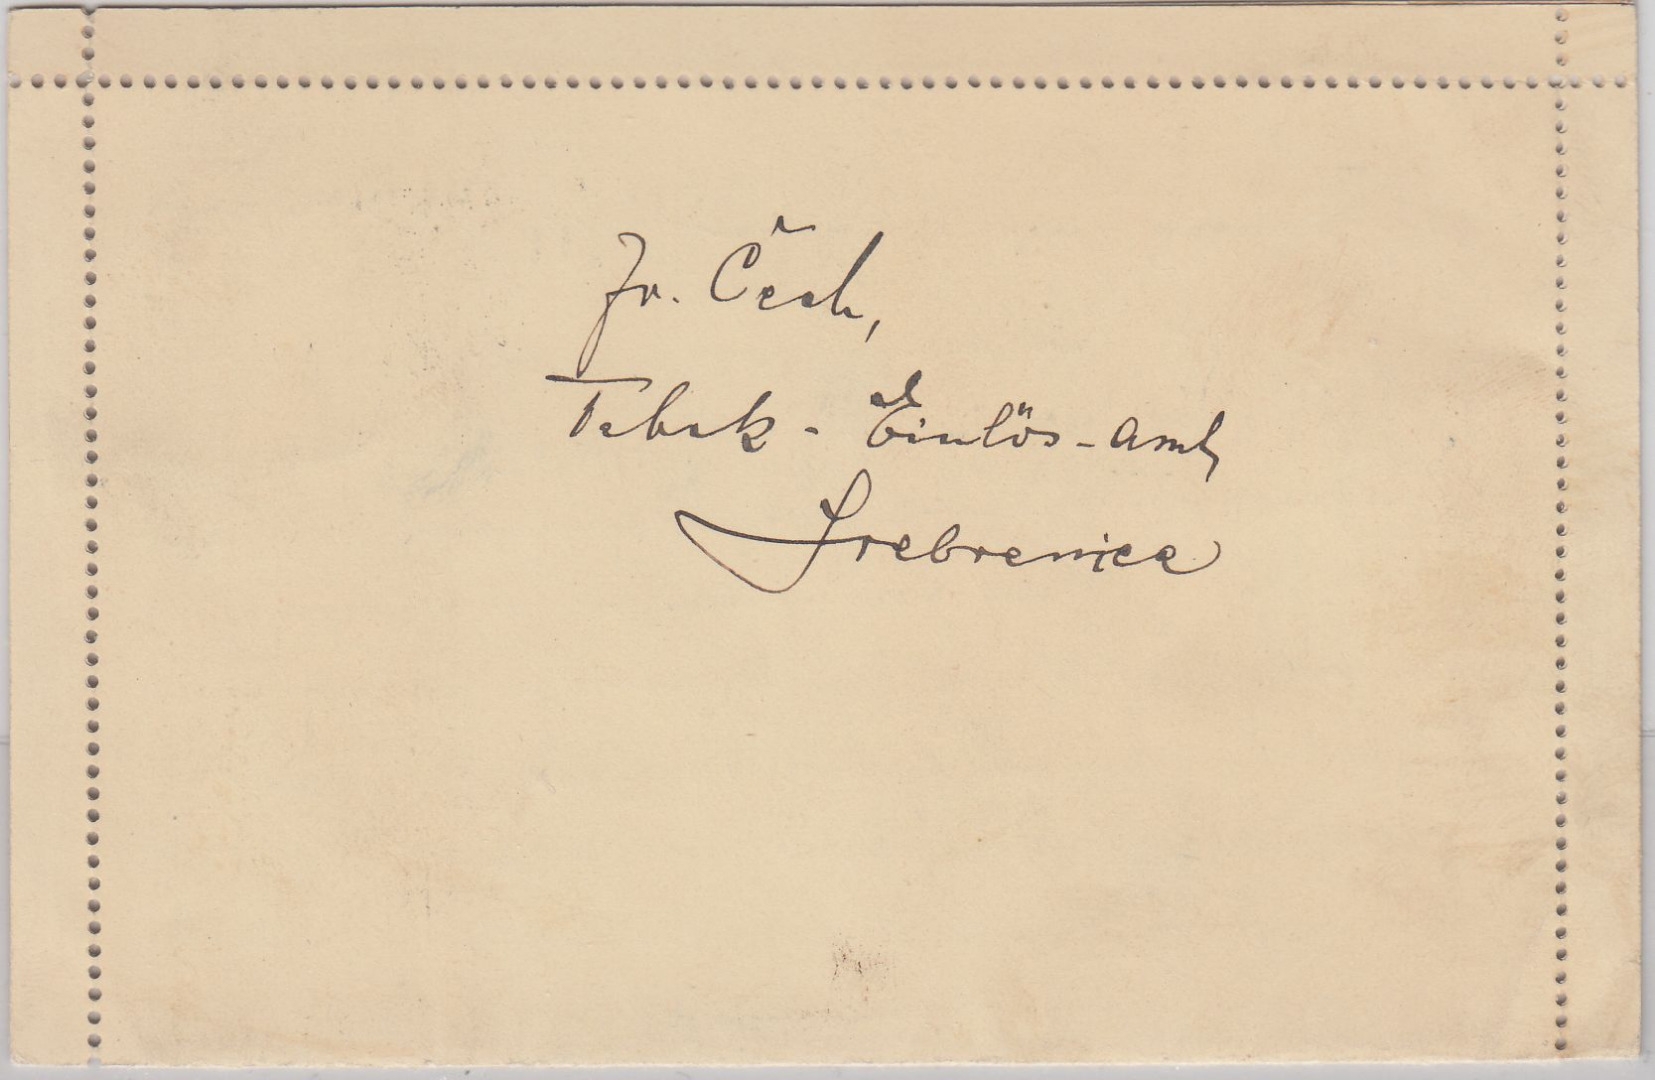 Fr. Čech,
Tabak - Einlös - Amt,
Srebrenica